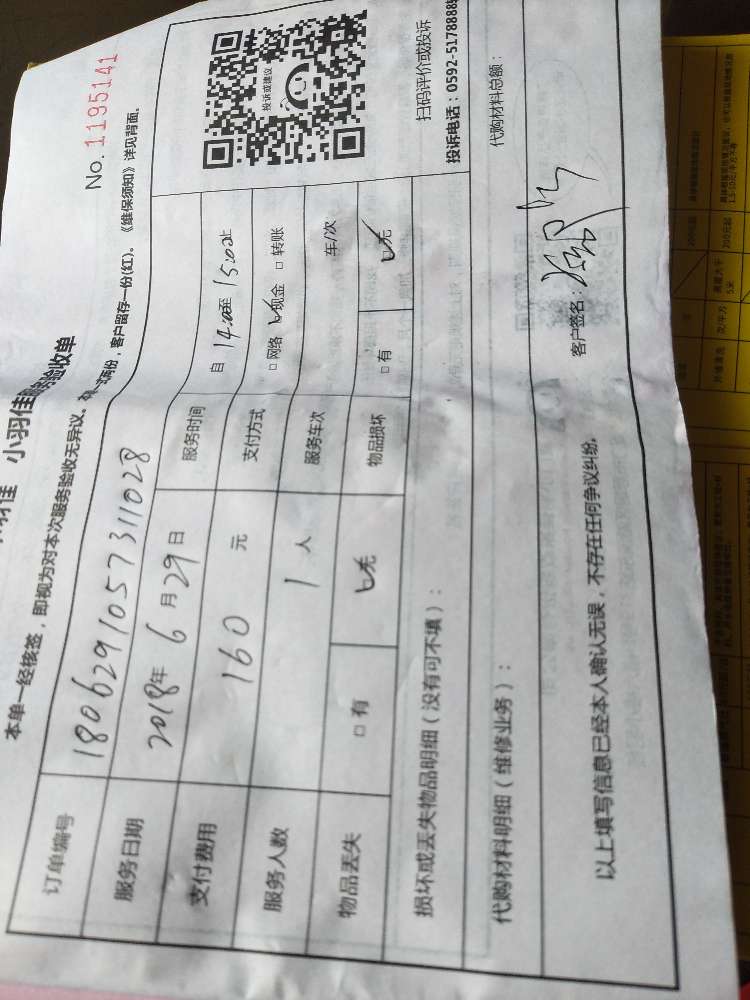 小羽佳 验收单
No. 1195141
本单一经核签，即视为对本次服务验收无异议。 两份，客户留存一份(红)。《维保须知》详见背面。
订单编号 1806291057311028
服务日期 2018年 6月29日 服务时间 自 14:00至 15:00止
支付费用 160 元 支付方式 □网络 ☑现金 □转账
服务人数 1 人 服务车次 车/次
物品丢失 □有 ☑无 物品损坏 □有 ☑无
投诉或建议
扫码评价或投诉
投诉电话：0592-5178888
损坏或丢失物品明细（没有可不填）：
代购材料明细（维修业务）： 代购材料总额：
以上填写信息已经本人确认无误，不存在任何争议纠纷。 客户签名：